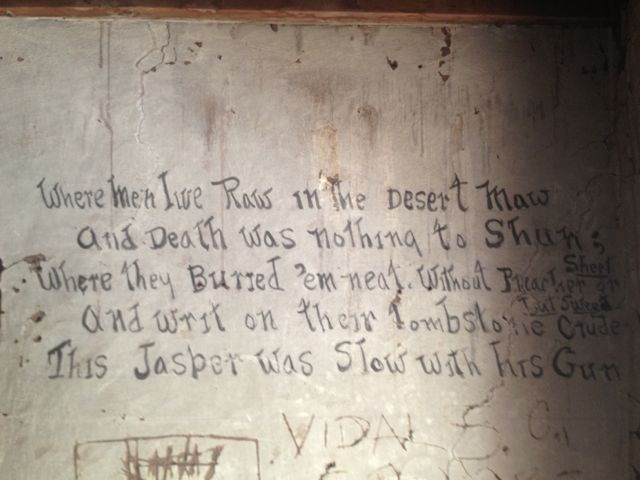 Where Men Live Raw in the Desert Maw
and Death was nothing to Shun;
Where they Buried 'em neat. Without Preacher or Sheet
and writ on their Tombstone Crude But Sweet
This Jasper was Slow with his Gun
VIDAL S. O.